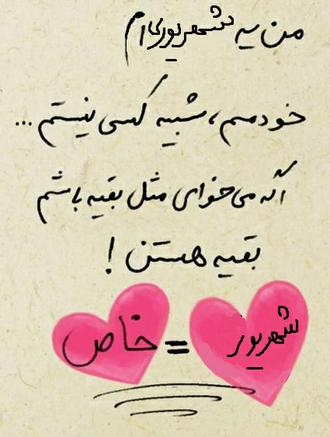 من یه شهریوری‌ام
خودمم، شبیه کسی نیستم ...
اگه می‌خوای مثل بقیه باشم
بقیه هستن !
شهریور = خاص